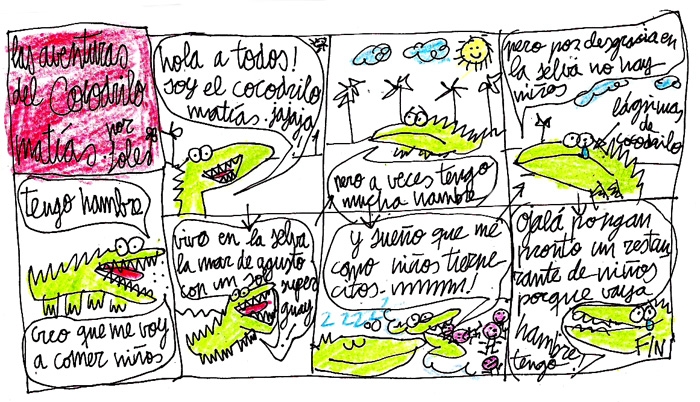 las aventuras
del Cocodrilo
matías. por
soles
tengo hambre
creo que me voy
a comer niños
hola a todos!
soy el cocodrilo
matías. jajaja!!!
vivo en la selva
la mar de agusto
con un sol
super
guay!
pero a veces tengo
mucha hambre
y sueño que me
como niños tierne
citos. mmmm!
zzzz
pero por desgrasia en
la selva no hay
niños
lágrimas
de
cocodrilo
ojalá pongan
pronto un restau
rante de niños
porque vaya
hambre
tengo!
FIN